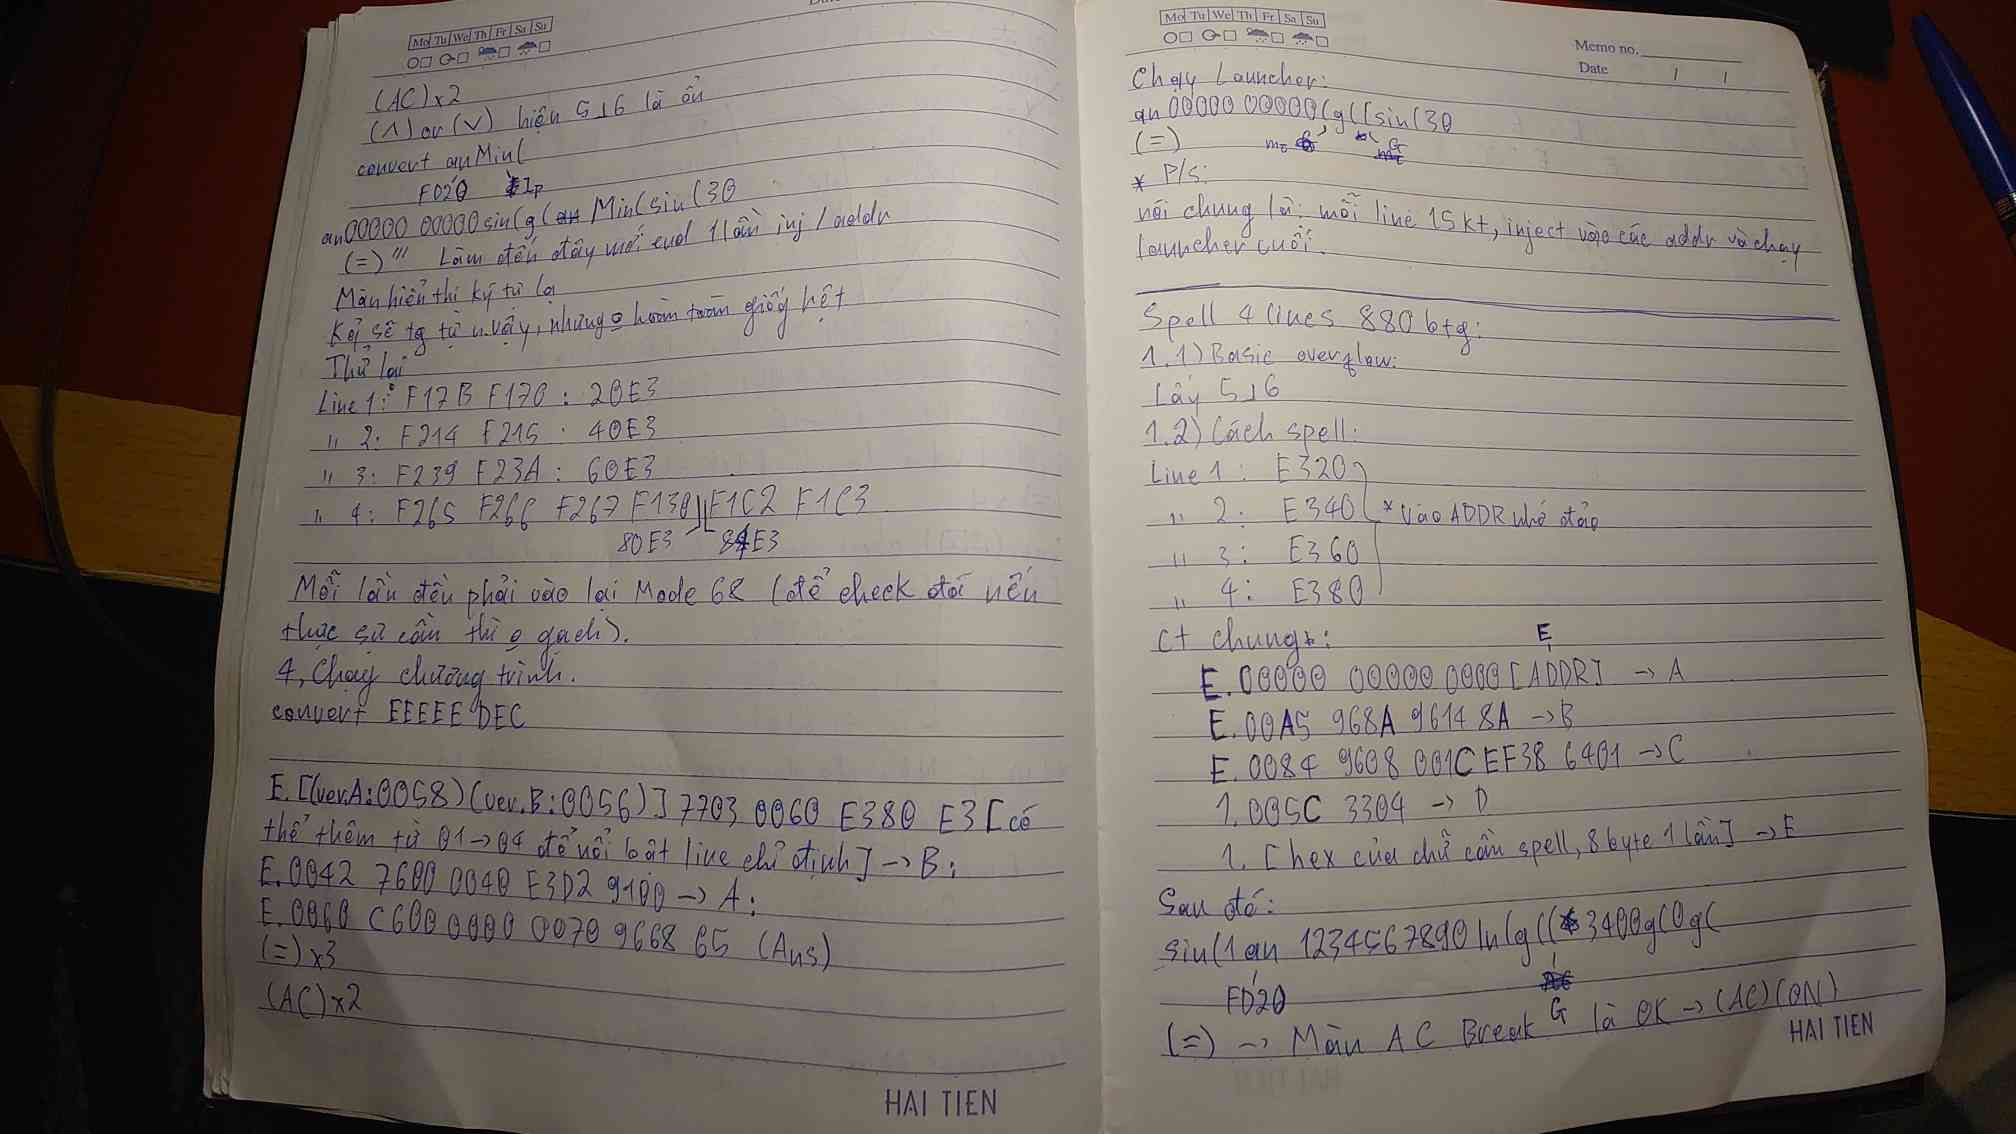 Mo Tu We Th Fr Sa Su
(AC)x2
(Λ) or (V) hiện 5⅃6 là ổn
convert an Min(
FD20 Ip
an 00000 00000 sin(g( Min(sin(30
(=) "' Làm đến đây mới cuol 1 lần inj 1 addr
Màn hiển thị ký tự lạ
Kq sẽ tg tự n.vậy, nhưng o hoàn toàn giốg hệt
Thử lại
Line 1: F17B F170 : 20E3
" 2: F214 F215 : 40E3
" 3: F239 F23A : 60E3
" 4: F265 F266 F267 F130 F1C2 F1C3
80E3 84E3
Mỗi lần đều phải vào lại Mode 68 (để check đói nếu
thực sự cần thì o gạch).
4, Chạy chương trình.
convert EEEEE DEC
E.[(ver.A:0058)(ver.B:0056)] 7703 0060 E380 E3 [có
thể thêm từ 01→04 để nổi bật line chỉ định] → B:
E.0042 7600 0040 E3D2 9100 → A:
E.0060 C600 0000 0070 9668 65 (Ans)
(=)x3
(AC)x2
HAI TIEN
Mo Tu We Th Fr Sa Su
Memo no.
Date / /
Chạy Launcher:
an 00000 00000(g(([sin(30
(=)
* P/s:
nói chung là: mỗi line 15kt, inject vào các addr và chạy
launcher cuối.
Spell 4 lines 880 btg:
1.1) Basic overflow:
Lấy 5⅃6
1.2) Cách spell:
Line 1: E320
" 2: E340 * vào ADDR nhớ đảo
" 3: E360
" 4: E380
Ct chung:
E
E.00000 00000 0000 [ADDR] → A
E.00A5 968A 9614 8A → B
E.0084 9608 001C EF38 6401 → C
1.005C 3304 → D
1. [hex của chữ cần spell, 8 byte 1 lần] → E
Sau đó:
sin(1 an 1234567890 ln(g(( 3400g(0g(
FD20
G
(=) → Màn AC Break là OK → (AC)(ON)
HAI TIEN